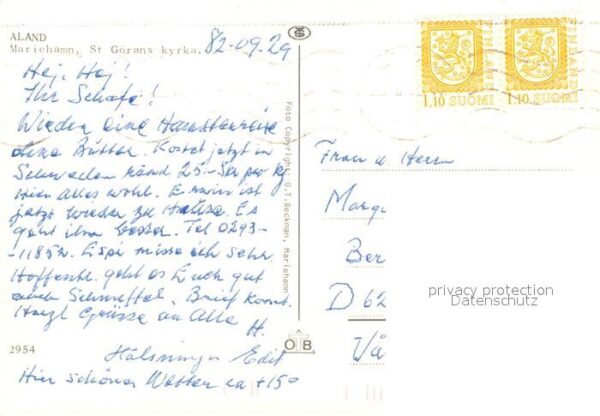 ÅLAND
Mariehamn, St Görans kyrka.
82-09.29
Hej, Hej!
Ihr Schafe!
Wieder eine Hamsterreise
ohne Butter. Kostet jetzt in
Schweden rund 25.- Skr pro kg
Hier Alles wohl. Erwin ist
jetzt wieder zu Hause. Es
geht ihm besser. Tel 0293-
-11852. Espi misse ich sehr.
Hoffentl. geht es Euch gut
auch Schmeffel. Brief kommt.
Herzl Grüsse an Alle
H.
Hälsningar Edit
Hier schönes Wetter ca +15°
2954
Foto Copyright: O.T.Bockman, Mariehamn
ÖTB
1,10 SUOMI
1,10 SUOMI
FINLAND
Frau u Herrn
Marg
Ber
D 62
Vä
privacy protection
Datenschutz